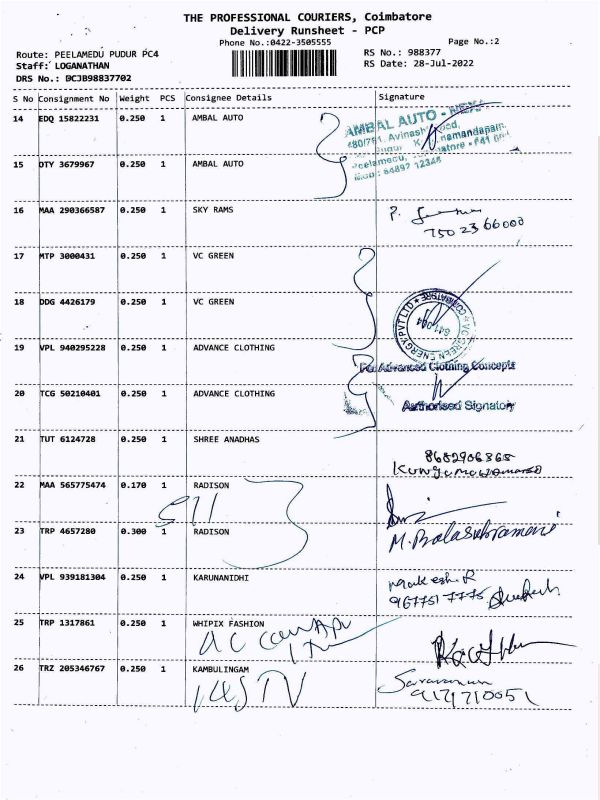 THE PROFESSIONAL COURIERS, Coimbatore
Delivery Runsheet - PCP
Phone No.:0422-3505555
Page No.:2
Route: PEELAMEDU PUDUR PC4
RS No.: 988377
Staff: LOGANATHAN
RS Date: 28-Jul-2022
DRS No.: DCJB98837702
S No Consignment No Weight PCS Consignee Details Signature
14 EDQ 15822231 0.250 1 AMBAL AUTO
AMBAL AUTO -
15 DTY 3679967 0.250 1 AMBAL AUTO
16 MAA 290366587 0.250 1 SKY RAMS P.
75023 66000
17 MTP 3000431 0.250 1 VC GREEN
18 DDG 4426179 0.250 1 VC GREEN
VC GREEN ENERGY PVT LTD ★ COIMBATORE ★
19 VPL 940295228 0.250 1 ADVANCE CLOTHING
For Advanced Clothing Concepts
20 TCG 50210401 0.250 1 ADVANCE CLOTHING
Authorised Signatory
21 TUT 6124728 0.250 1 SHREE ANADHAS
8682906865
22 MAA 565775474 0.170 1 RADISON
23 TRP 4657280 0.300 1 RADISON
M. Balasubramani
24 VPL 939181304 0.250 1 KARUNANIDHI
Mokesh. R
9677517775
25 TRP 1317861 0.250 1 WHIPIX FASHION
26 TRZ 205346767 0.250 1 KAMBULINGAM
Saravanan